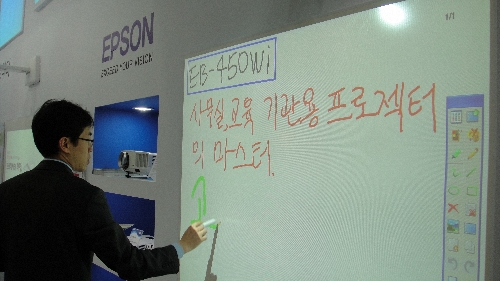 EPSON
EXCEED YOUR VISION
1/1
EB-450Wi
사무실,교육 기관용 프로젝터
의 마스터.